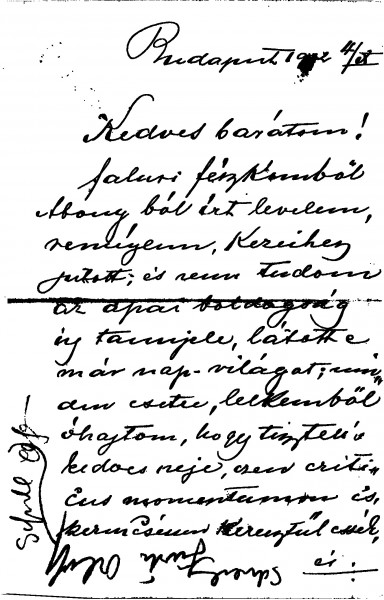 Budapest 1912 4/IX
Kedves barátom!
falusi fészkemből
Abony ból írt levelem,
remélem, Kezeihez
jutott; és nem tudom
az apai boldogság
új tanujele, látott e
már nap-világot; min
den esetre, lelkemből
óhajtom, hogy tisztelt
kedves neje, ezen criti
cus momentumon is,
szerencsésen keresztül essék,
és :